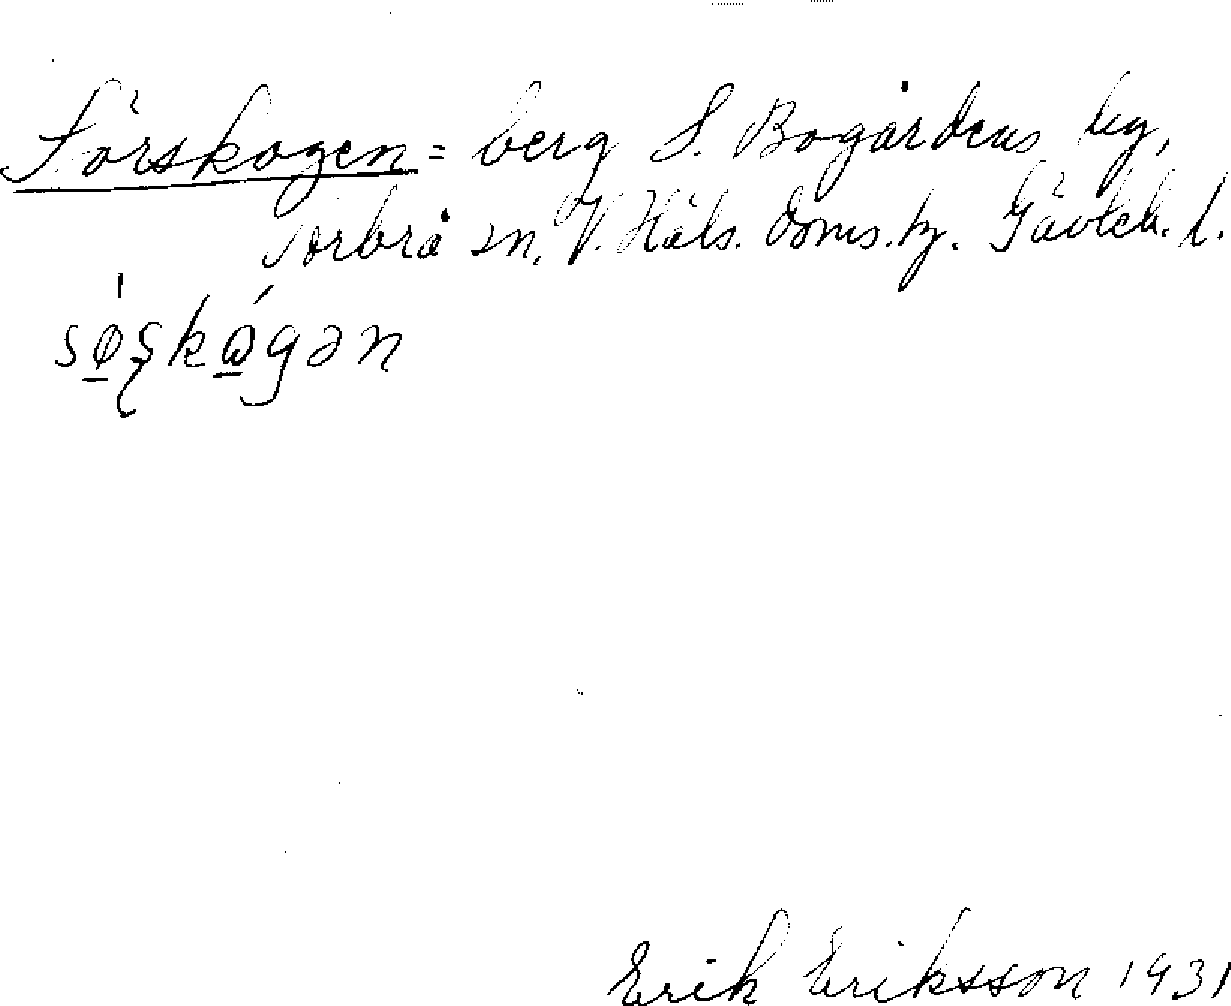 Sörskogen = berg S. Bogårdens by,
Arbrå sn, V. Häls. doms. Gävleb. l.
sǿ̲ʂkɷ̲́gən
Erik Eriksson 1931